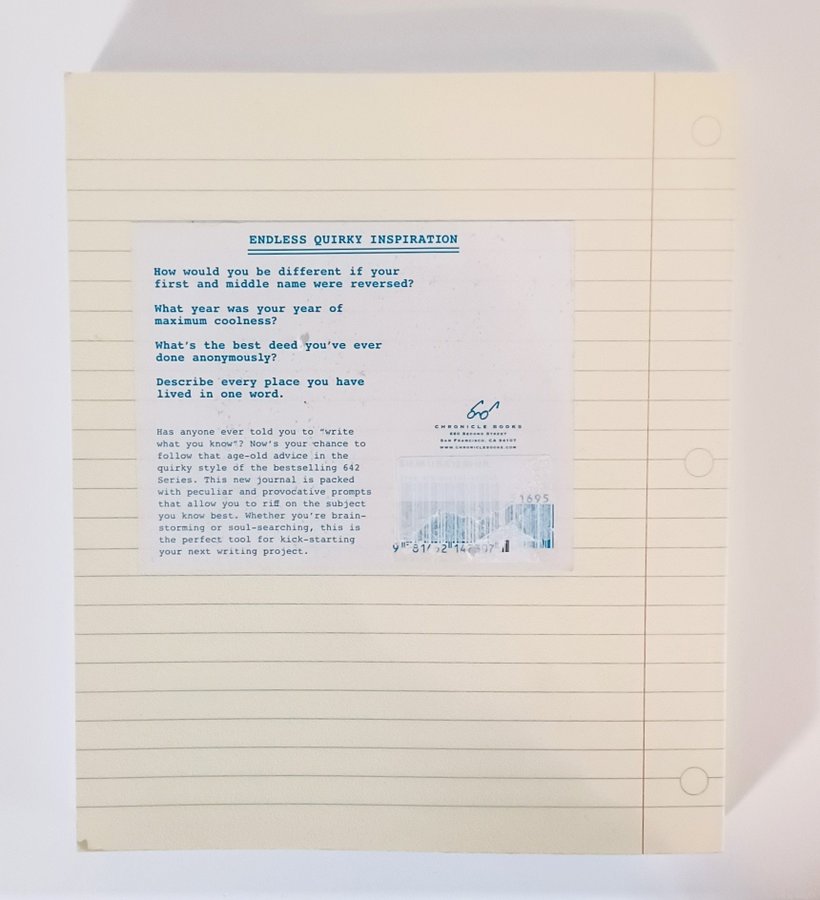 ENDLESS QUIRKY INSPIRATION
How would you be different if your
first and middle name were reversed?
What year was your year of
maximum coolness?
What's the best deed you've ever
done anonymously?
Describe every place you have
lived in one word.
Has anyone ever told you to "write
what you know"? Now's your chance to
follow that age-old advice in the
quirky style of the bestselling 642
Series. This new journal is packed
with peculiar and provocative prompts
that allow you to riff on the subject
you know best. Whether you're brain-
storming or soul-searching, this is
the perfect tool for kick-starting
your next writing project.
CHRONICLE BOOKS
680 SECOND STREET
SAN FRANCISCO, CA 94107
WWW.CHRONICLEBOOKS.COM